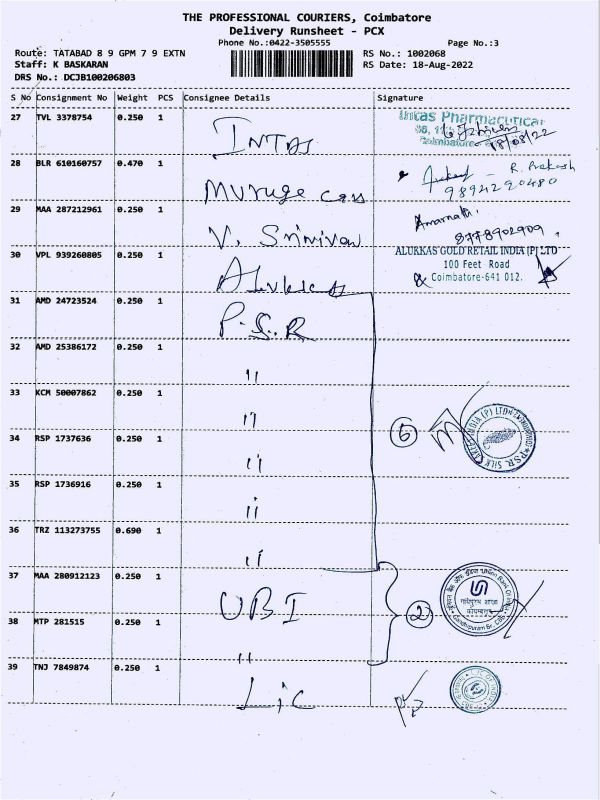 THE PROFESSIONAL COURIERS, Coimbatore
Delivery Runsheet - PCX
Phone No.:0422-3505555
Page No.:3
Route: TATABAD 8 9 GPM 7 9 EXTN
RS No.: 1002068
Staff: K BASKARAN
RS Date: 18-Aug-2022
DRS No.: DCJB100206803
S No Consignment No Weight PCS Consignee Details Signature
27 TVL 3378754 0.250 1 INTAS
Intas Pharmaceutical
18/08/22
28 BLR 610160757 0.470 1 Muruga
R. Prakash
9894290480
29 MAA 287212961 0.250 1 V. Srinivas
Amarnath.
8778902909
30 VPL 939260805 0.250 1 Alukkas
ALUKKAS GOLD RETAIL INDIA (P) LTD
100 Feet Road
Coimbatore-641 012.
31 AMD 24723524 0.250 1 P.S.R
32 AMD 25386172 0.250 1 "
33 KCM 50007862 0.250 1 "
34 RSP 1737636 0.250 1 " 6
35 RSP 1736916 0.250 1 "
36 TRZ 113273755 0.690 1 "
37 MAA 280912123 0.250 1 UBI
38 MTP 281515 0.250 1 " 2
39 TNJ 7849874 0.250 1 Lic